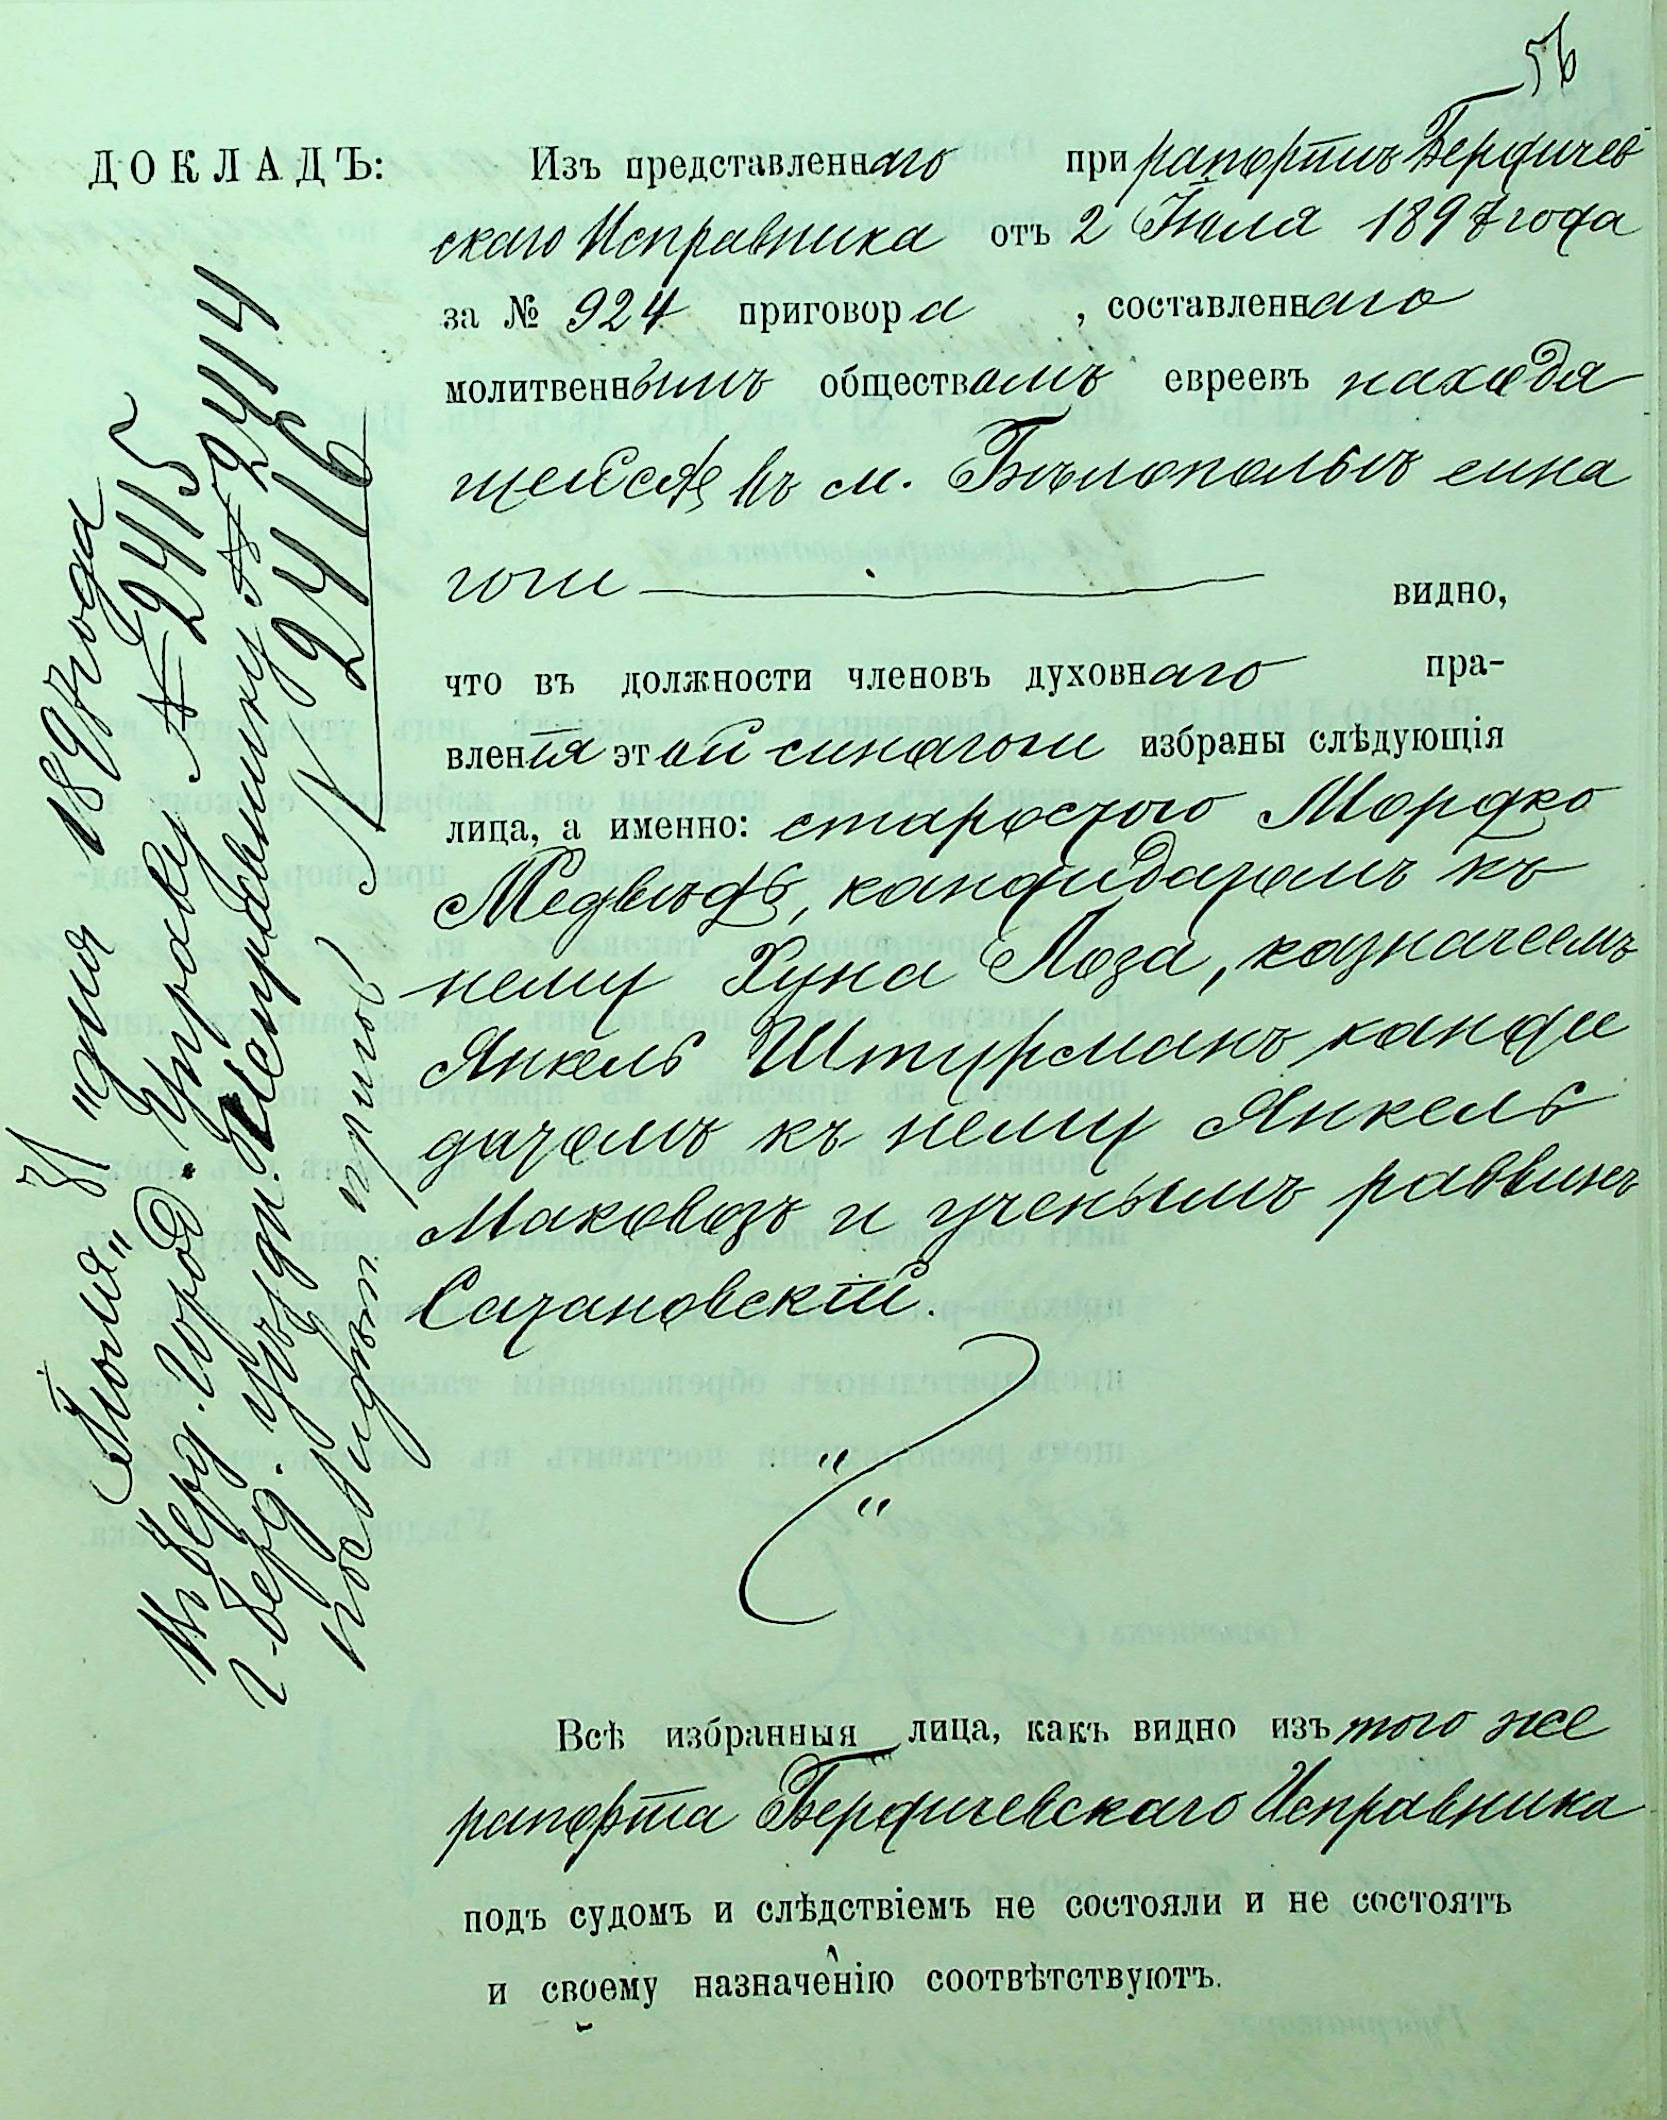 56
ДОКЛАДЪ:
Изъ представленнаго при рапортѣ Бердичев
скаго Исправника отъ 2 Іюля 1897 года
за № 924 приговора , составленнаго
молитвеннымъ обществомъ евреевъ находя
щейся въ м. Бѣлопольѣ сина
гоги видно,
что въ должности членовъ духовнаго пра-
вленія этой синагоги избраны слѣдующія
лица, а именно: старостою Мордко
Медвѣдь, кандидатомъ къ
нему Хуна Лоза, казначеемъ
Янкель Штурманъ, канди
датомъ къ нему Янкель
Маковозъ и ученымъ раввинъ
Сатановскій.
Всѣ избранныя лица, какъ видно изъ того же
рапорта Бердичевскаго Исправника
подъ судомъ и слѣдствіемъ не состояли и не состоятъ
и своему назначенію соотвѣтствуютъ.
"Іюля" 31 "дня 1897 года
Въ Берд. Город. Управу № 2415
г. Берд. уѣздн. Исправнику № 2414
послѣдн. приго № 2416